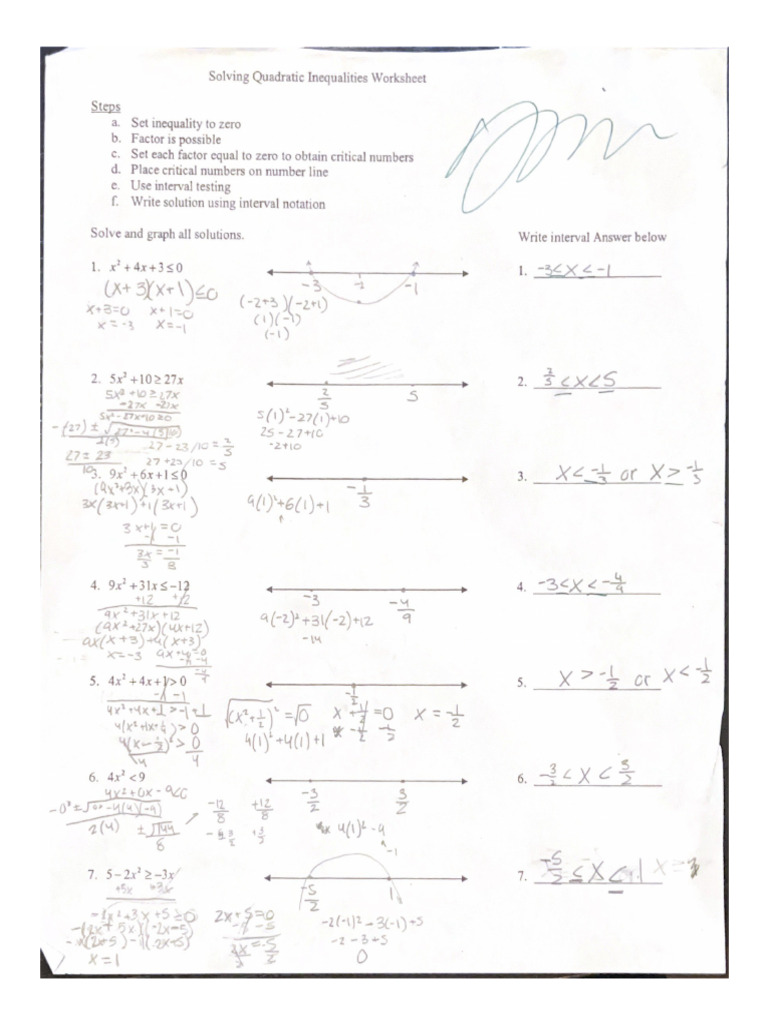 Solving Quadratic Inequalities Worksheet
Steps
a. Set inequality to zero
b. Factor is possible
c. Set each factor equal to zero to obtain critical numbers
d. Place critical numbers on number line
e. Use interval testing
f. Write solution using interval notation
Solve and graph all solutions. Write interval Answer below
1. x² + 4x + 3 ≤ 0
(x + 3)(x + 1) ≤ 0
x + 3 = 0 x + 1 = 0
x = -3 x = -1
-3 -1 -1
(-2+3)(-2+1)
(1)(-1)
(-1)
1. -3 ≤ x ≤ -1
2. 5x² + 10 ≥ 27x
5x² + 10 ≥ 27x
-27x -27x
5x² - 27x + 10 ≥ 0
27 ± 23
10
27 - 23/10 = 2/5
27 + 23/10 = 5
2/5 5
5(1)² - 27(1) + 10
25 - 27 + 10
-2 + 10
2. 2/5 ≤ x ≤ 5
3. 9x² + 6x + 1 ≤ 0
(9x² + 3x)(3x + 1)
3x(3x + 1) + 1(3x + 1)
3x + 1 = 0
-1 -1
3x/3 = -1/8
-1/3
9(1)² + 6(1) + 1
3. x ≤ -1/3 or x ≥ -1/3
4. 9x² + 31x ≤ -12
+12 +12
9x² + 31x + 12
(9x² + 27x)(4x + 12)
9x(x + 3) + 4(x + 3)
x = -3 9x + 4 = 0
-4 -4
-4/9
-3 -4/9
9(-2)² + 31(-2) + 12
-14
4. -3 ≤ x ≤ -4/9
5. 4x² + 4x + 1 > 0
-1 -1
-1/2
4(1)² + 4(1) + 1
x = -1/2
5. x > -1/2 or x < -1/2
6. 4x² < 9
4x² + 0x - 9 < 0
2(4)
8
-12/8 +12/8
-3/2 3/2
4(1)² - 9
6. -3/2 < x < 3/2
7. 5 - 2x² ≥ -3x
+3x +3x
2x + 5 = 0
-5 -5
x = 1
-5/2 1
-2(-1)² - 3(-1) + 5
-2 - 3 + 5
0
7. -5/2 ≤ x ≤ 1